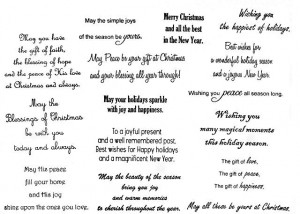 May you have
the gift of faith,
the blessing of hope
and the peace of His love
at Christmas and always.
May the simple joys
of the season be yours.
Merry Christmas
and all the best
in the New Year.
Wishing you
the happiest of holidays.
Best wishes for
a wonderful holiday season
and a joyous New Year.
May Peace be your gift at Christmas
and your blessing all year through!
Wishing you peace all season long.
May the
Blessings of Christmas
be with you
today and always.
May your holidays sparkle
with joy and happiness.
Wishing you
many magical moments
this holiday season.
To a joyful present
and a well remembered past.
Best wishes for Happy holidays
and a magnificent New Year.
The gift of love.
The gift of peace.
The gift of happiness.
May all these be yours at Christmas.
May this peace
fill your home
and this joy
shine upon the ones you love.
May the beauty of the season
bring you joy
and warm memories
to cherish throughout the year.